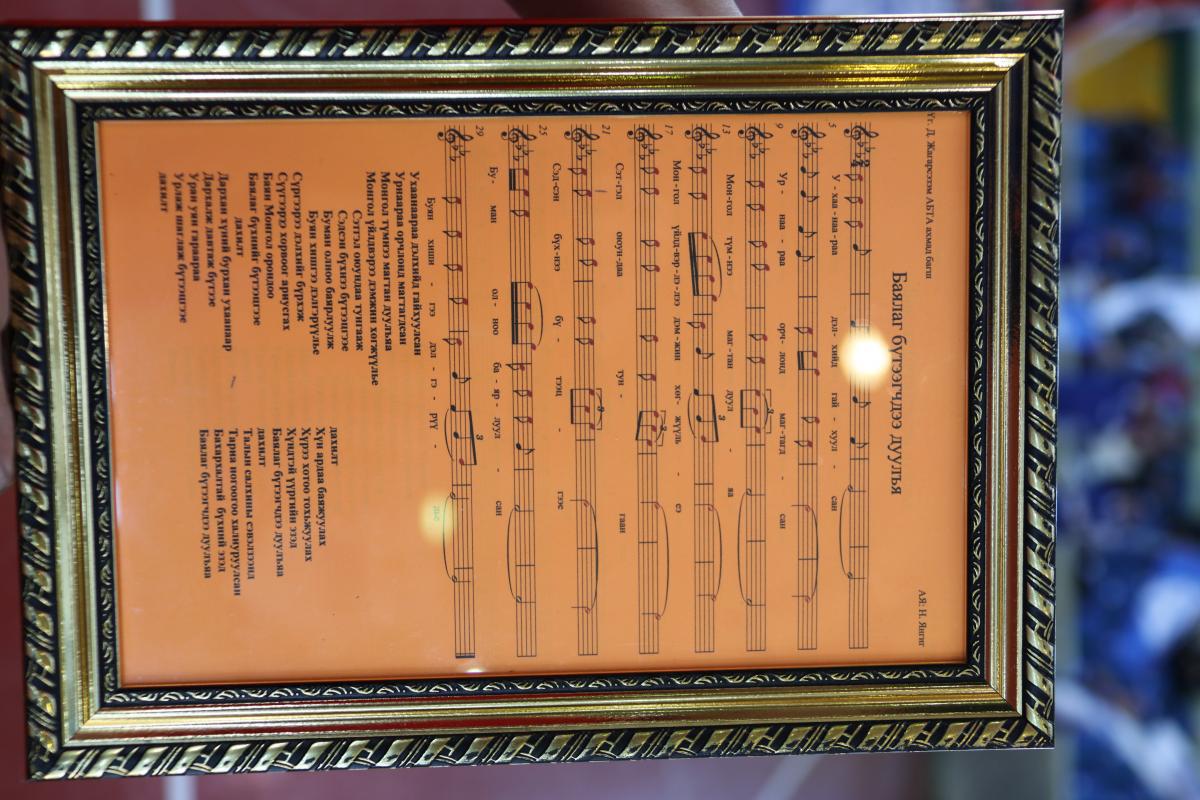 Үг. Д. Жагарсэзэм АБТА ахмад багш
АЯ: Н. Янгиг
Баялаг бүтээгчдээ дуулья
У - хаа - наа - раа дэл - хийд гай - хуул - сан
5
Ур - наа - раа орч - лонд маг - тагд - сан
9
Мон - гол түм - нээ маг - тан дуул - яа
13
Мон - гол үйлд - вэр - лэ - лээ дэм - жин хөг - жүүль - еэ
17
Сэт - гэл оюун - даа тун - гаан
21
Сэд - сэн бүх - нээ бү - тээц - гээе
25
Бу - ман ол - ноо ба - яр - луул - сан
29
Буян хиши - гээ дэл - гэ - рүү -
Ухаанаараа дэлхийд гайхуулсан
Урнаараа орчлонд магтагдсан
Монгол түмнээ магтан дуулъяа
Монгол үйлдвэрээ дэмжин хөгжүүлье
Сэтгэл оюундаа тунгааж
Сэдсэн бүхнээ бүтээцгээе
Буман олноо баярлуулж
Буян хишгээ дэлгэрүүлье
Сүргээрээ дэлхийг бүрхэж
Сүүгээрээ хорвоог ариусгах
Баян Монгол орондоо
Баялаг бүхнийг бүтээцгээе
дахилт
Дархан хүний бурхан ухаанаар
Дархалж давтаж бүтээе
Уран үйн гараараа
Урлаж шаглаж бүтээцгээе
дахилт
дахилт
Хүн ардаа баяжуулах
Хүрээ хотоо тохьжуулах
Хүндтэй үүргийн эзэд
Баялаг бүтээгчдээ дуулъяа
дахилт
Талын салхины сэвэлзээнд
Тариа ногоогоо халиуруулсан
Бахархалтай бүхний эзэд
Баялаг бүтээгчдээ дуулъяа